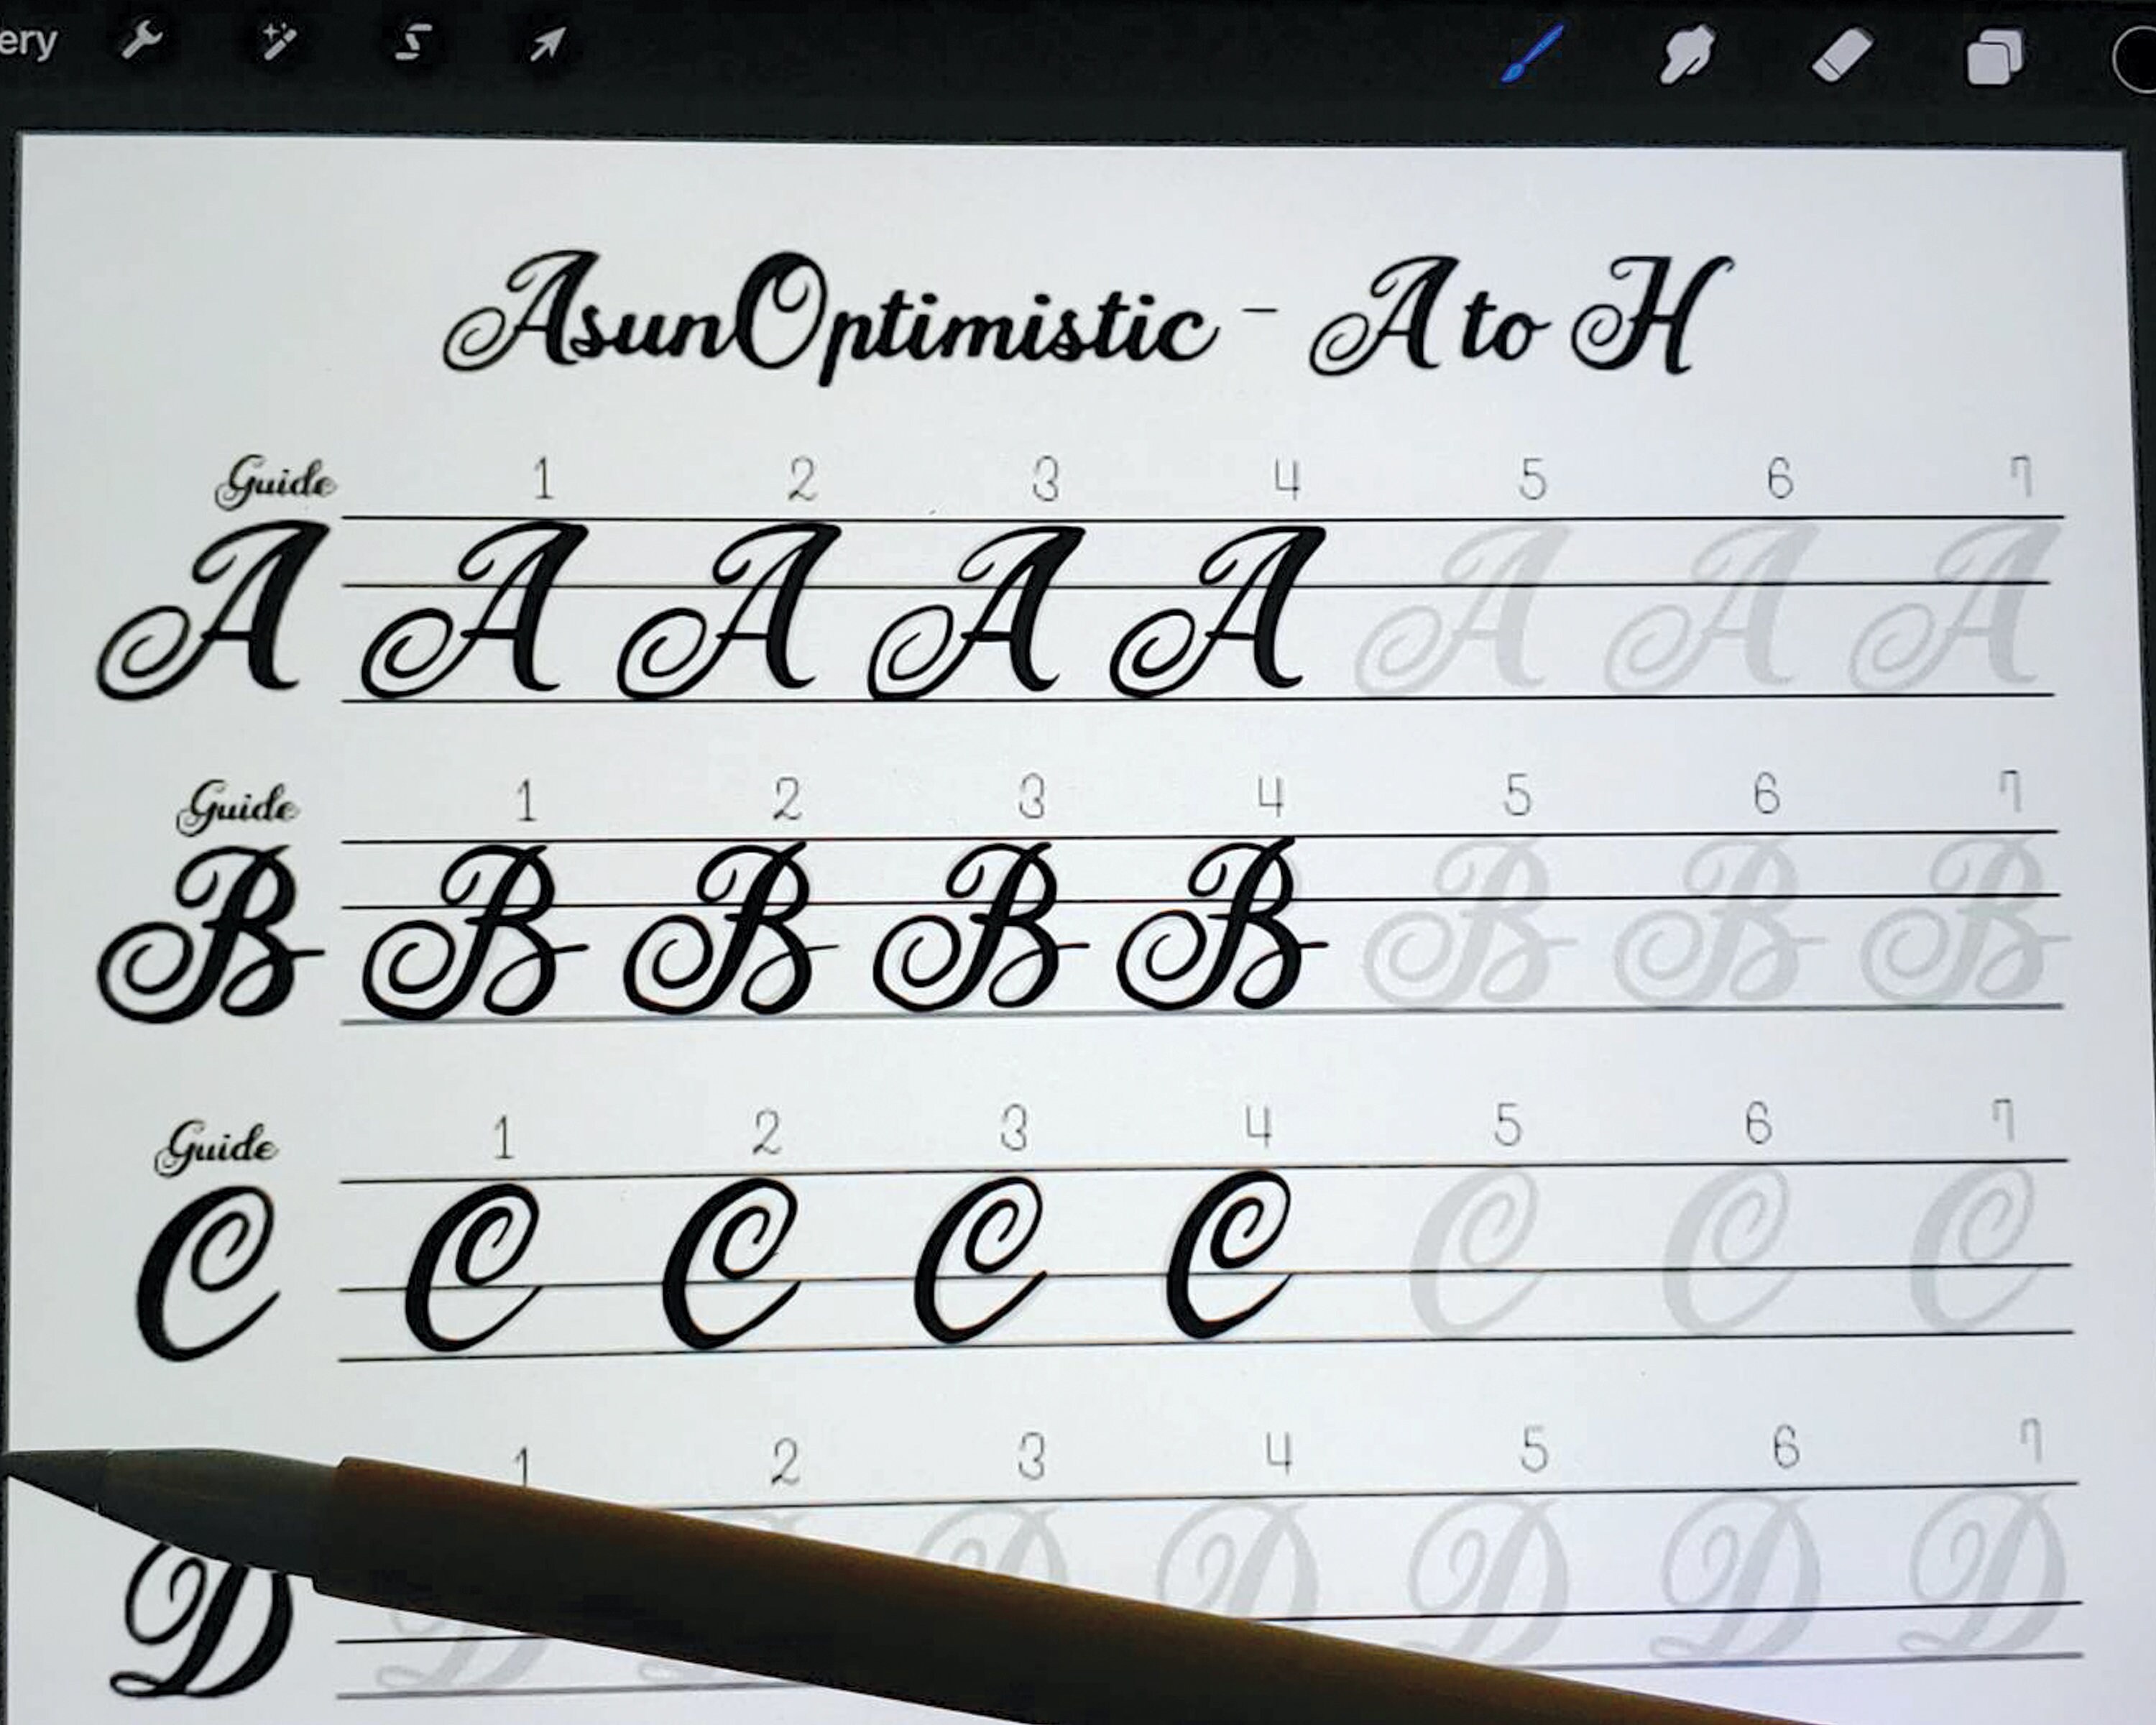 ery
AsunOptimistic - A to H
Guide 1 2 3 4 5 6 7
A A A A A A A A
Guide 1 2 3 4 5 6 7
B B B B B B B B
Guide 1 2 3 4 5 6 7
C C C C C C C C
1 2 3 4 5 6 7
D D D D D D D D